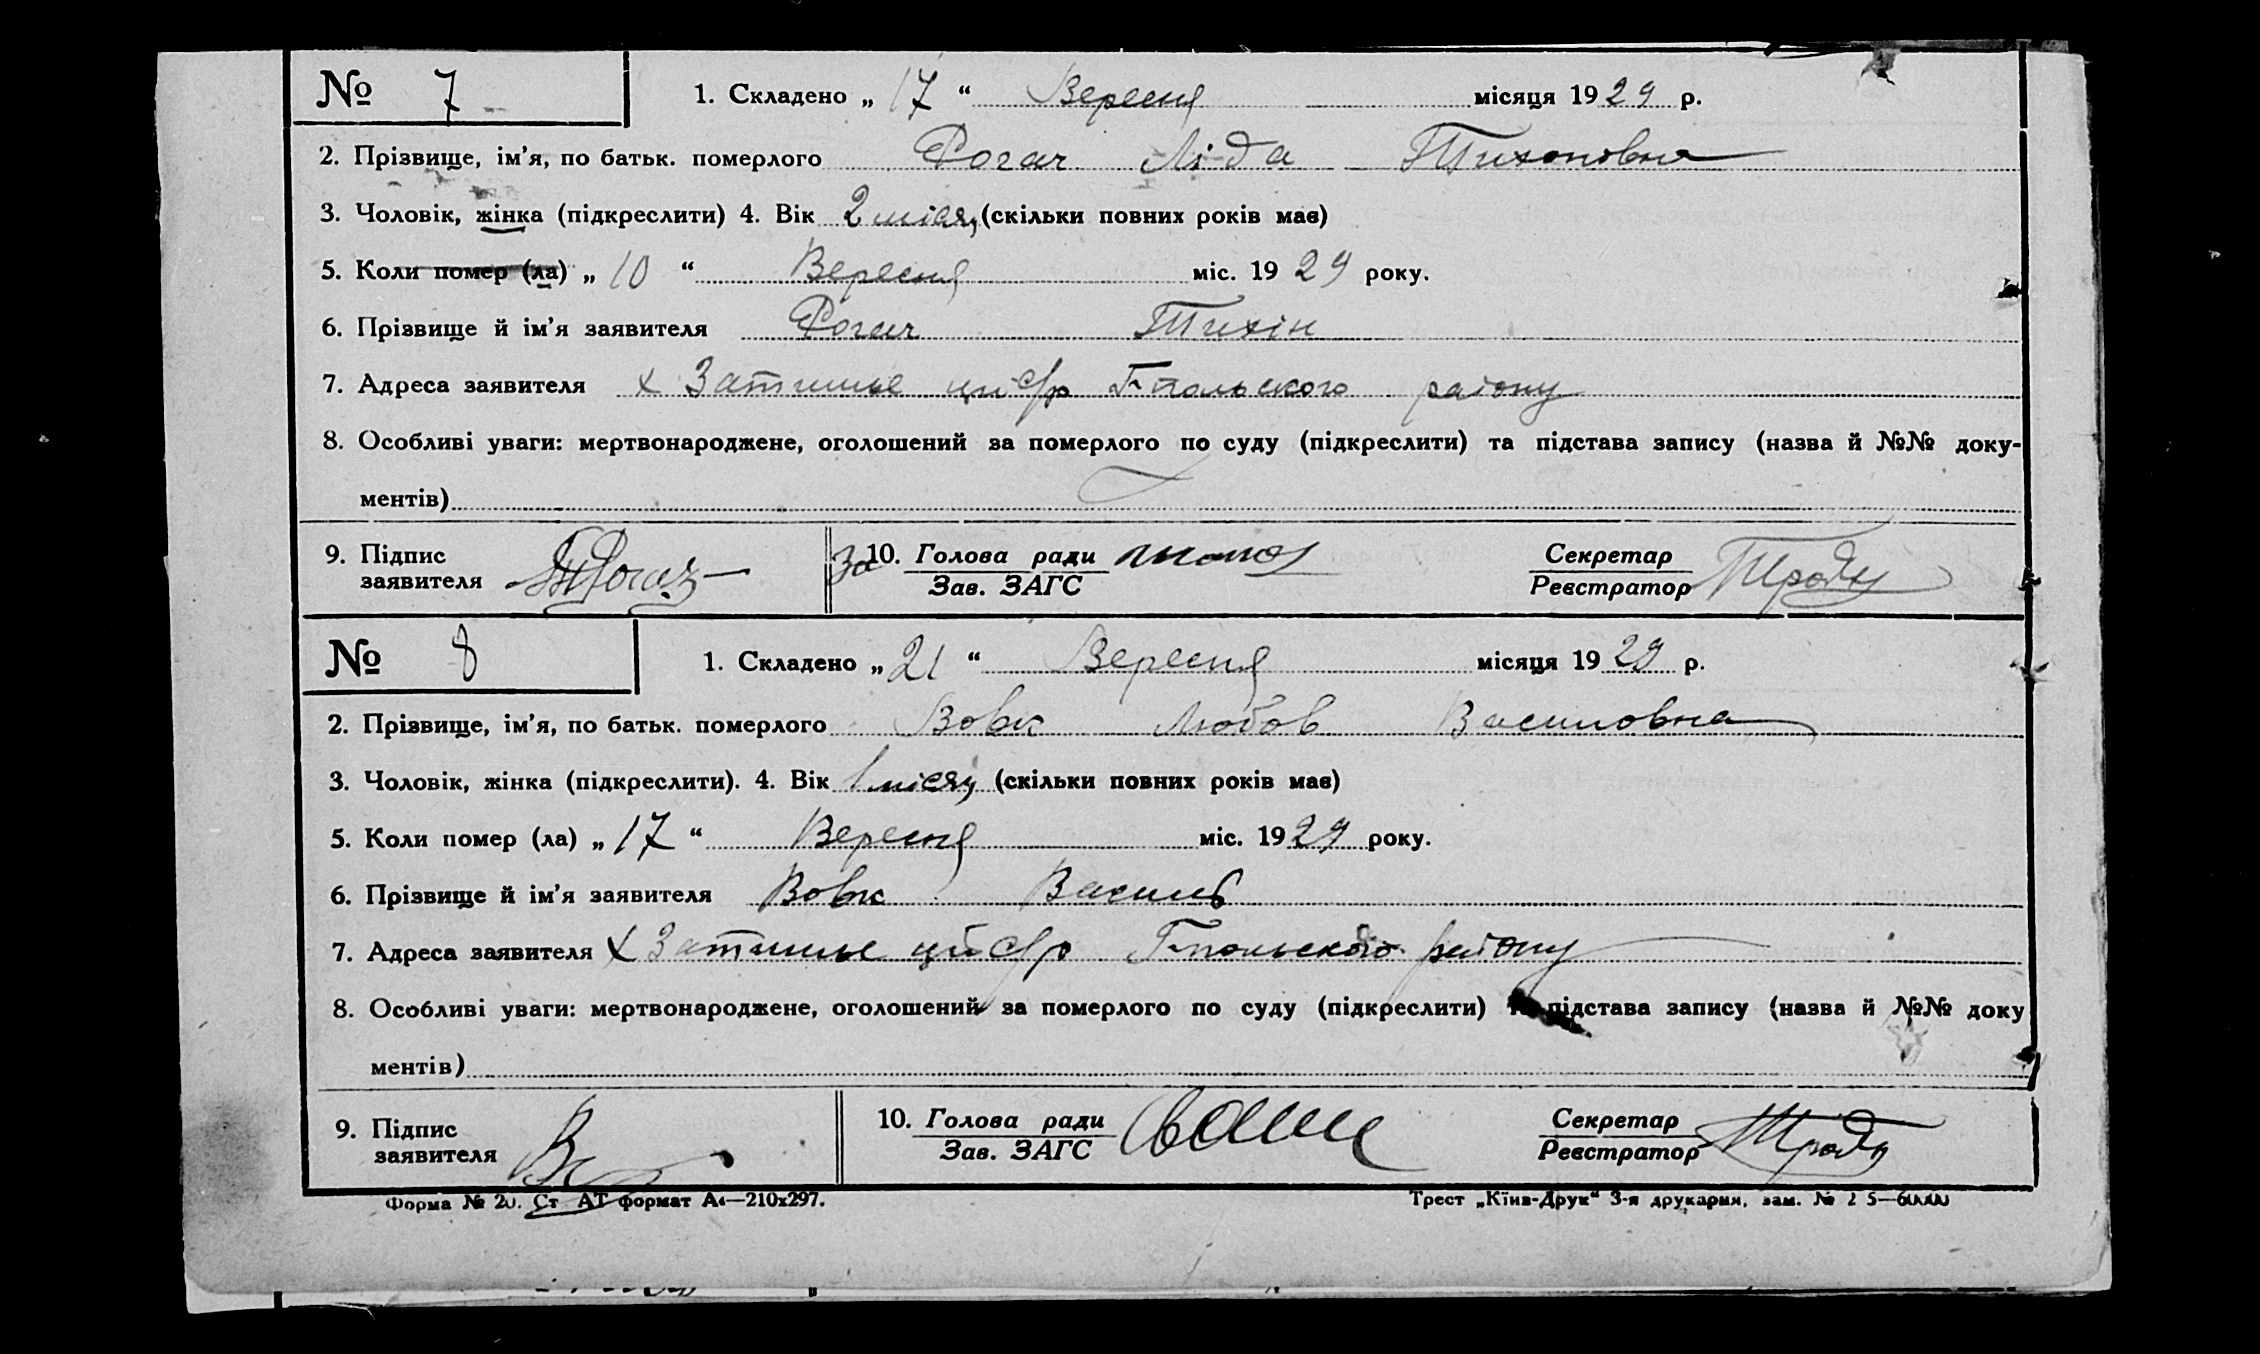 № 7 1. Складено „ 17 “ Вересня місяця 1929 р.
2. Прізвище, ім’я, по батьк. померлого Рогач Ліда Тихоновна
3. Чоловік, жінка (підкреслити) 4. Вік 2 місяц (скільки повних років має)
5. Коли помер (ла) „ 10 “ Вересня міс. 1929 року.
6. Прізвище й ім’я заявителя Рогач Тихін
7. Адреса заявителя х Затишье ций с/р Г-польского району
8. Особливі уваги: мертвонароджене, оголошений за померлого по суду (підкреслити) та підстава запису (назва й №№ доку-
ментів)
9. Підпис заявителя Т Рогач За 10. Голова ради Зав. ЗАГС Секретар Реєстратор
№ 8 1. Складено „ 21 “ Вересня місяця 1929 р.
2. Прізвище, ім’я, по батьк. померлого Вовк Любов Василовна
3. Чоловік, жінка (підкреслити). 4. Вік 1 місяц (скільки повних років має)
5. Коли помер (ла) „ 17 “ Вересня міс. 1929 року.
6. Прізвище й ім’я заявителя Вовк Василь
7. Адреса заявителя х Затишье ций с/р Г-польского району
8. Особливі уваги: мертвонароджене, оголошений за померлого по суду (підкреслити) та підстава запису (назва й №№ доку
ментів)
9. Підпис заявителя 10. Голова ради Зав. ЗАГС Секретар Реєстратор
Форма № 20. Ст АТ формат А4—210х297. Трест „Київ-Друк“ 3-я друкарня, зам. №